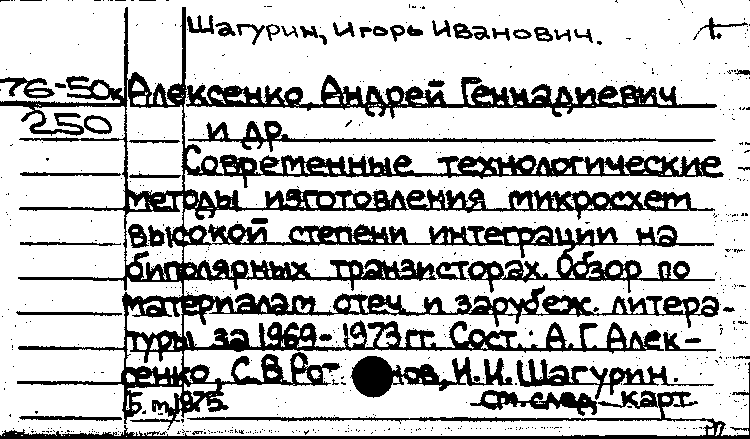 Шагурин, Игорь Иванович. т.
76-50к Алексенко, Андрей Геннадиевич
250 и др.
Современные технологические
методы изготовления микросхем
высокой степени интеграции на
биполярных транзисторах. Обзор по
материалам отеч. и зарубеж. литера-
туры за 1969-1973 гг. Сост.: А.Г. Алек-
сенко, С.В. , И.И. Шагурин.
Б.м., 1975. см. след. карт.